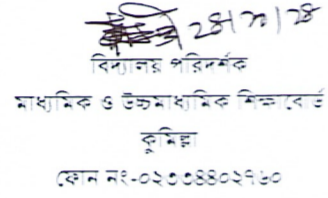 ২৪|১১|২৪
বিদ্যালয় পরিদর্শক
মাধ্যমিক ও উচ্চমাধ্যমিক শিক্ষাবোর্ড
কুমিল্লা
ফোন নং-০২৩৩৪৪০২৭৬০